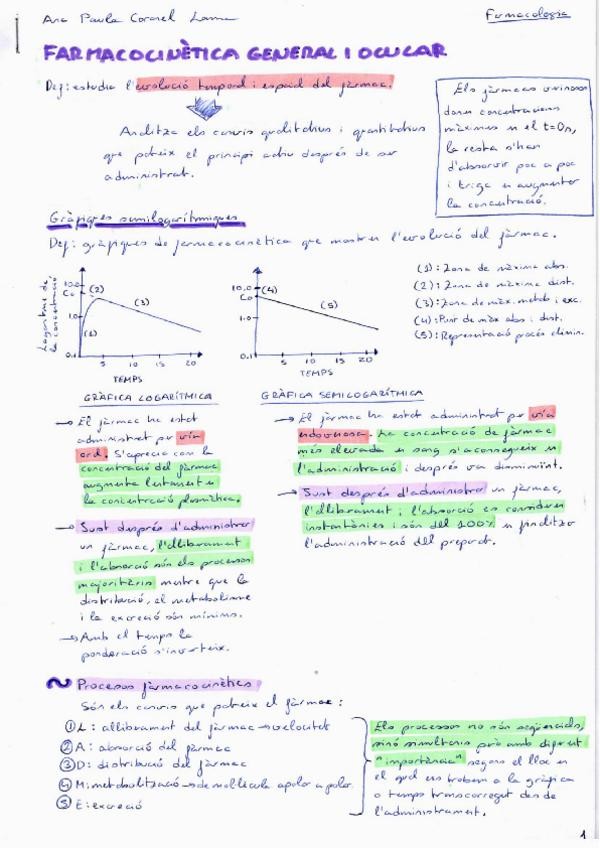 Ana Paula Coronel Lama
Farmacologia
FARMACOCINÈTICA GENERAL I OCULAR
Def: estudia l'evolució temporal i espaial del fàrmac.
Analitza els canvis qualitatius i quantitatius
que pateix el principi actiu després de ser
administrat.
Els fàrmacs
donen concentracions
màximes en el t=0s,
la resta s'han
d'absorvir poc a poc
i triga en augmentar
la concentració.
Gràfiques semilogarítmiques
Def: gràfiques de farmacocinètica que mostren l'evolució del fàrmac.
Logaritme de
la concentració
10.0
Co
1.0
0.1
(1)
(2)
(3)
5 10 15 20
TEMPS
10.0
Co
1.0
0.1
(4)
(5)
5 10 15 20
TEMPS
(1): Zona de màxima abs.
(2): Zona de màxima dist.
(3): Zona de màx. metab i exc.
(4): Punt de màx abs i dist.
(5): Representació procés elimin.
GRÀFICA LOGARÍTMICA
→ El fàrmac ha estat
administrat per via
oral. S'aprecia com la
concentració del fàrmac
augmenta lentament en
la concentració plasmàtica.
→ Just després d'administrar
un fàrmac, l'alliberament
i l'absorció són els processos
majoritaris mentre que la
distribució, el metabolisme
i la excreció són mínims.
→ Amb el temps la
ponderació s'inverteix.
GRÀFICA SEMILOGARÍTMICA
→ El fàrmac ha estat administrat per via
endovenosa. La concentració de fàrmac
més elevada en sang s'aconsegueix en
l'administració i després va disminuint.
→ Just després d'administrar un fàrmac,
l'alliberament i l'absorció es consideren
instantànies i són del 100% en finalitzar
l'administració del preparat.
Processos fàrmacocinètics
Són els canvis que pateix el fàrmac:
① L: alliberament del fàrmac → velocitat
② A: absorció del fàrmac
③ D: distribució del fàrmac
④ M: metabolització → de molècula apolar a polar.
⑤ E: excreció
Els processos no són seqüencials,
sinó simultanis però amb diferent
"importància" segons el lloc en
el qual ens trobem a la gràfica
o temps transcorregut des de
l'administrament.
1